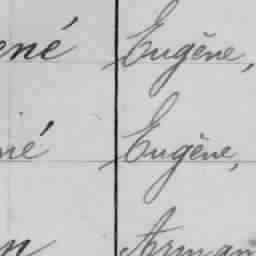 ené Eugène,
né Eugène,
n Arman